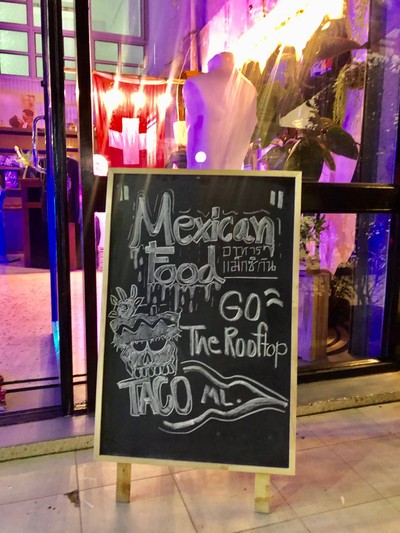 "Mexican"
Food
อาหาร
แม็กซิกัน
GO
The Rooftop
TACO ML.